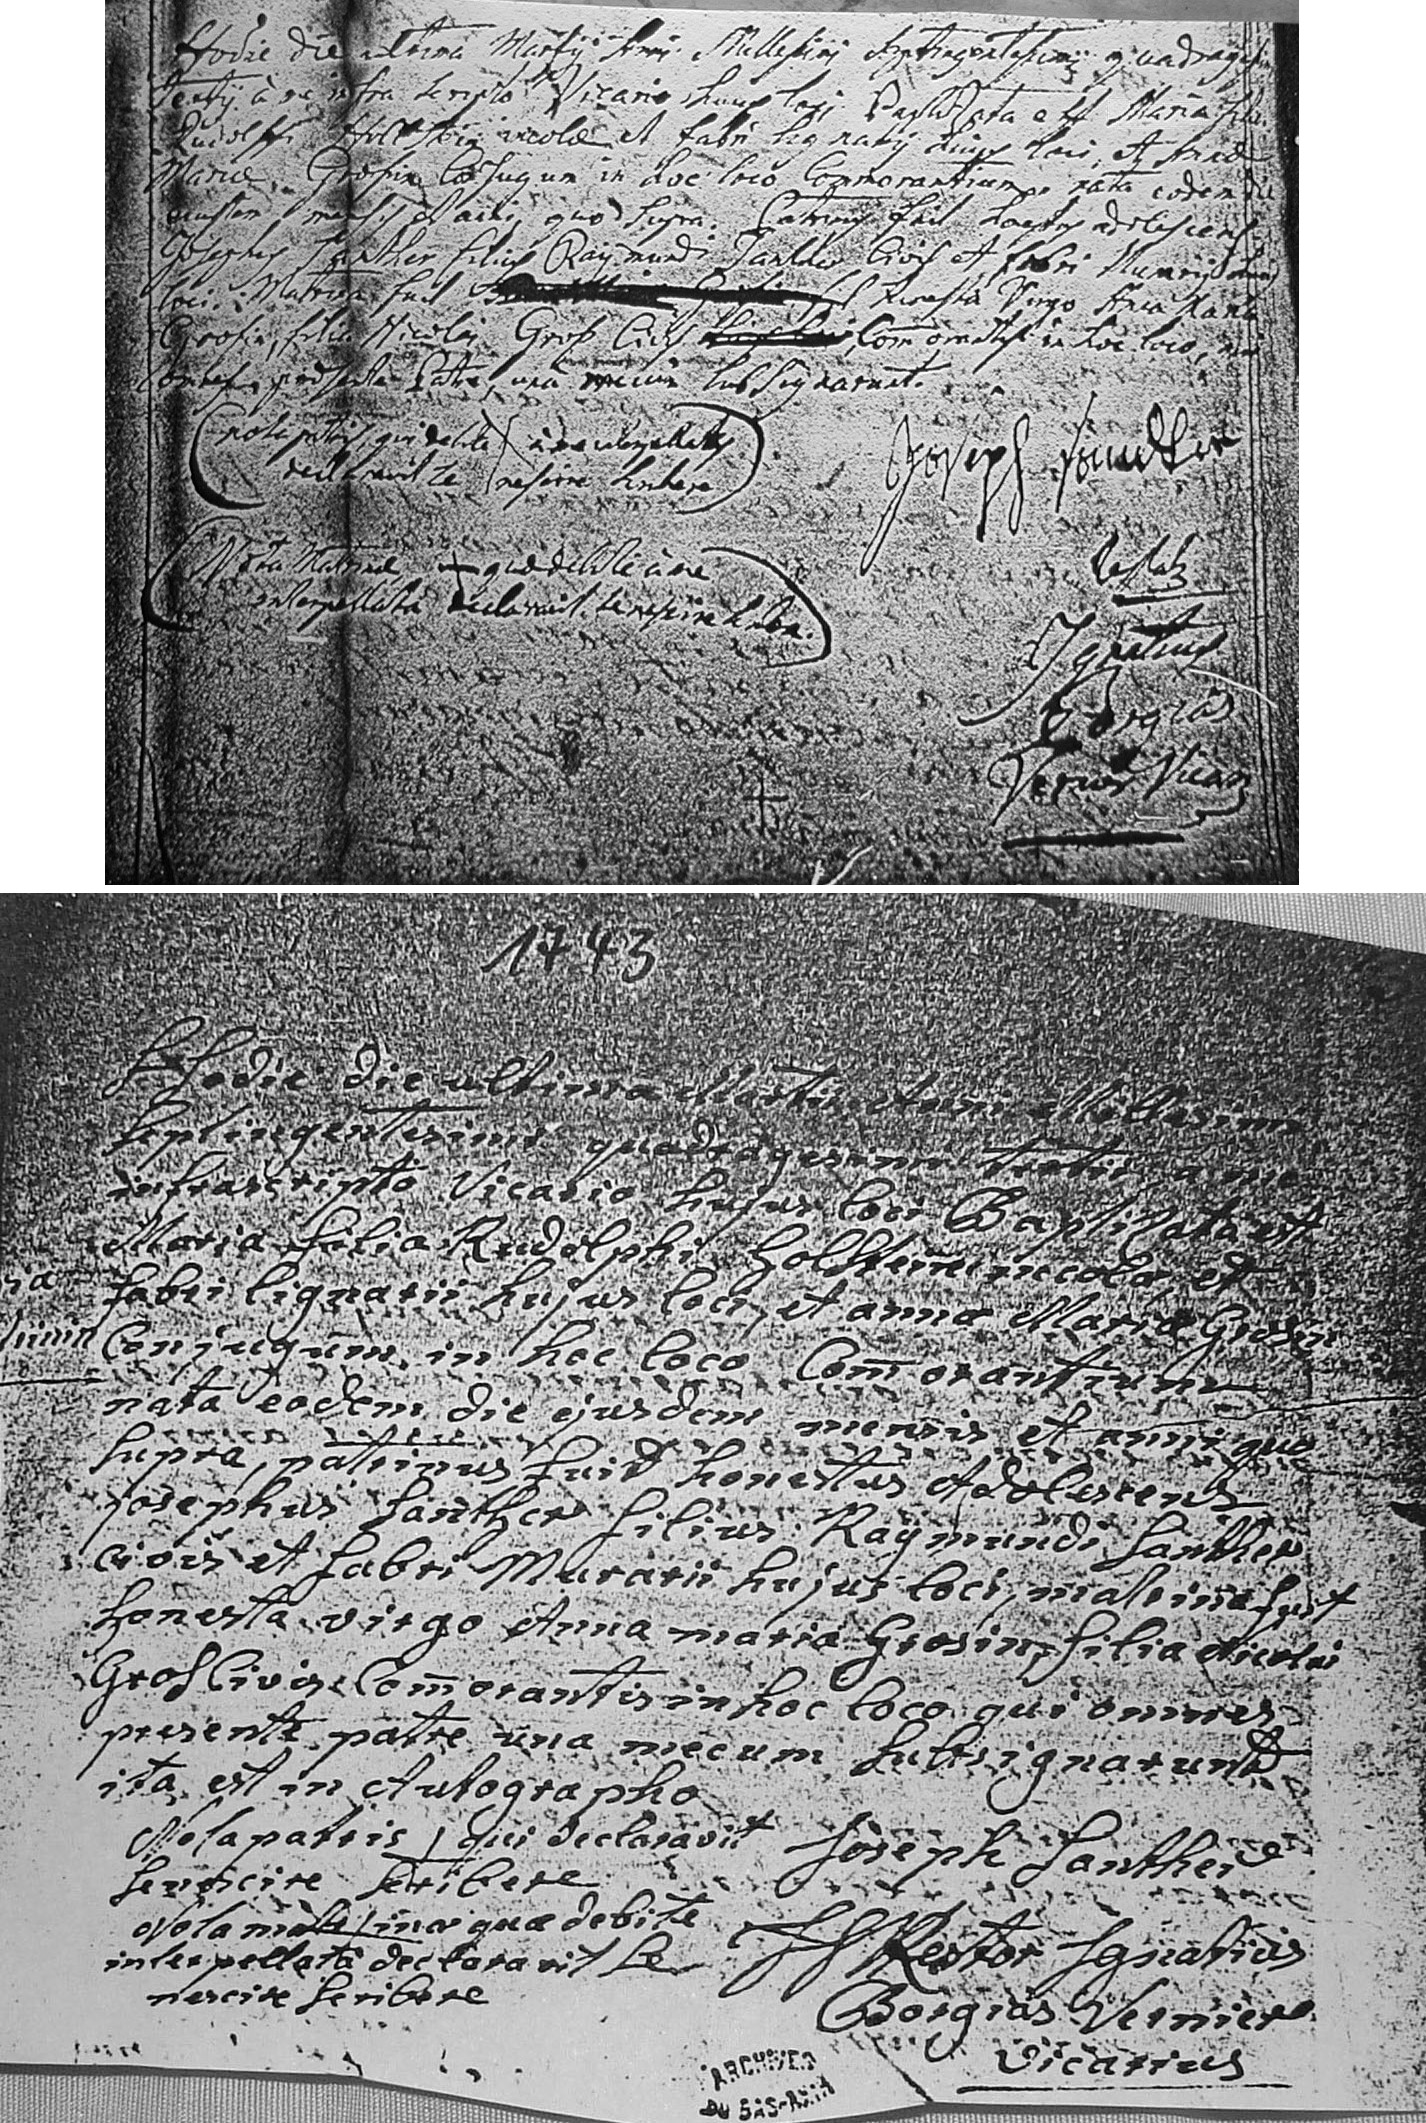 Hodie die ultima Martij Anni Millesimi Septingentesimi quadragesimi
tertij à me infra scripto Vicario hujus loci Baptizata est Maria filia
Rudolphi Holstein incolæ et fabri lignarij hujus loci, et Annæ
Mariæ Grosin Conjugum in hoc loco Commorantium, nata eodem die
ejusdem mensis et anni quo supra. Patrinus fuit honestus adolescens
Josephus Janther filius Raymundi Janther Civis et fabri Murarij hujus
loci. Matrina fuit honesta Virgo Anna Maria
Grosin, filia Nicolai Groß Civis Com̄orantis in hoc loco, qui
omnes præsente Patre, una mecum subsignarunt.
nota patris, qui debite à me interpellatus
declaravit se nescire scribere
Joseph Jandter
Nota Matrinæ + quæ debite à me
interpellata declaravit se nescire scribere.
Ignatius
Borgias
Vernier Vicarius
1743
Hodie die ultima Martii Anni Millesimi
septingentesimi quadragesimi tertii a me
infrascripto Vicario hujus loci Baptizata est
Maria filia Rudolphi Holstein incolæ, et
fabri lignarii hujus loci, et annæ Mariæ Grosin
Conjugum in hoc loco Com̄orantium
nata eodem die ejusdem mensis et anni quo
supra, patrinus fuit honestus Adolescens
josephus Janther filius Raymundi Janther
civis et fabri Murarii hujus loci, matrina fuit
honesta virgo Anna maria Grosin, filia Nicolai
Groß Civis Com̄orantis in hoc loco qui omnes
presente patre una mecum subsignarunt
ita est in Autographo
Nota patris / qui declaravit
se nescire scribere
Joseph Janther
Nota mat quæ debite
interpellata declaravit se
nescire scribere
Restor Ignatius
Borgias Vernier
vicarius
ARCHIVES
DU BAS-RHIN